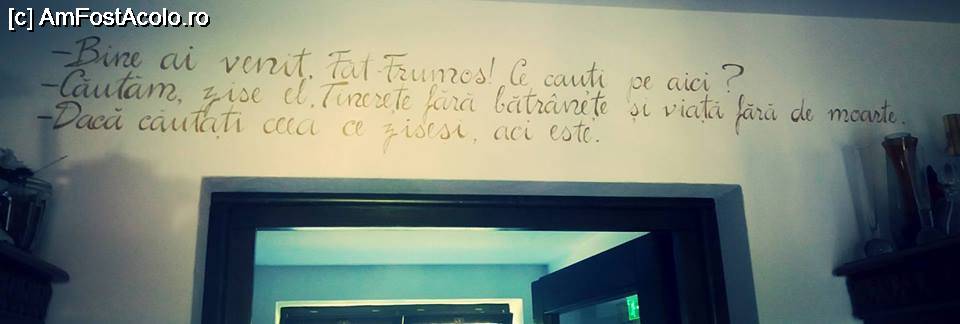 [c] AmFostAcolo.ro
-Bine ai venit, Făt-Frumos! Ce cauți pe aici?
-Căutăm, zise el, Tinerețe fără bătrânețe și viață fără de moarte.
-Dacă căutați ceea ce zisesi, aci este.